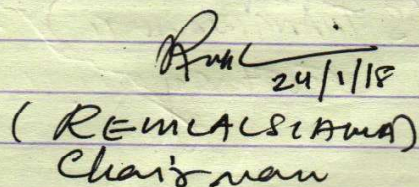 24/1/18
(REMLALSIAMA)
Chairman